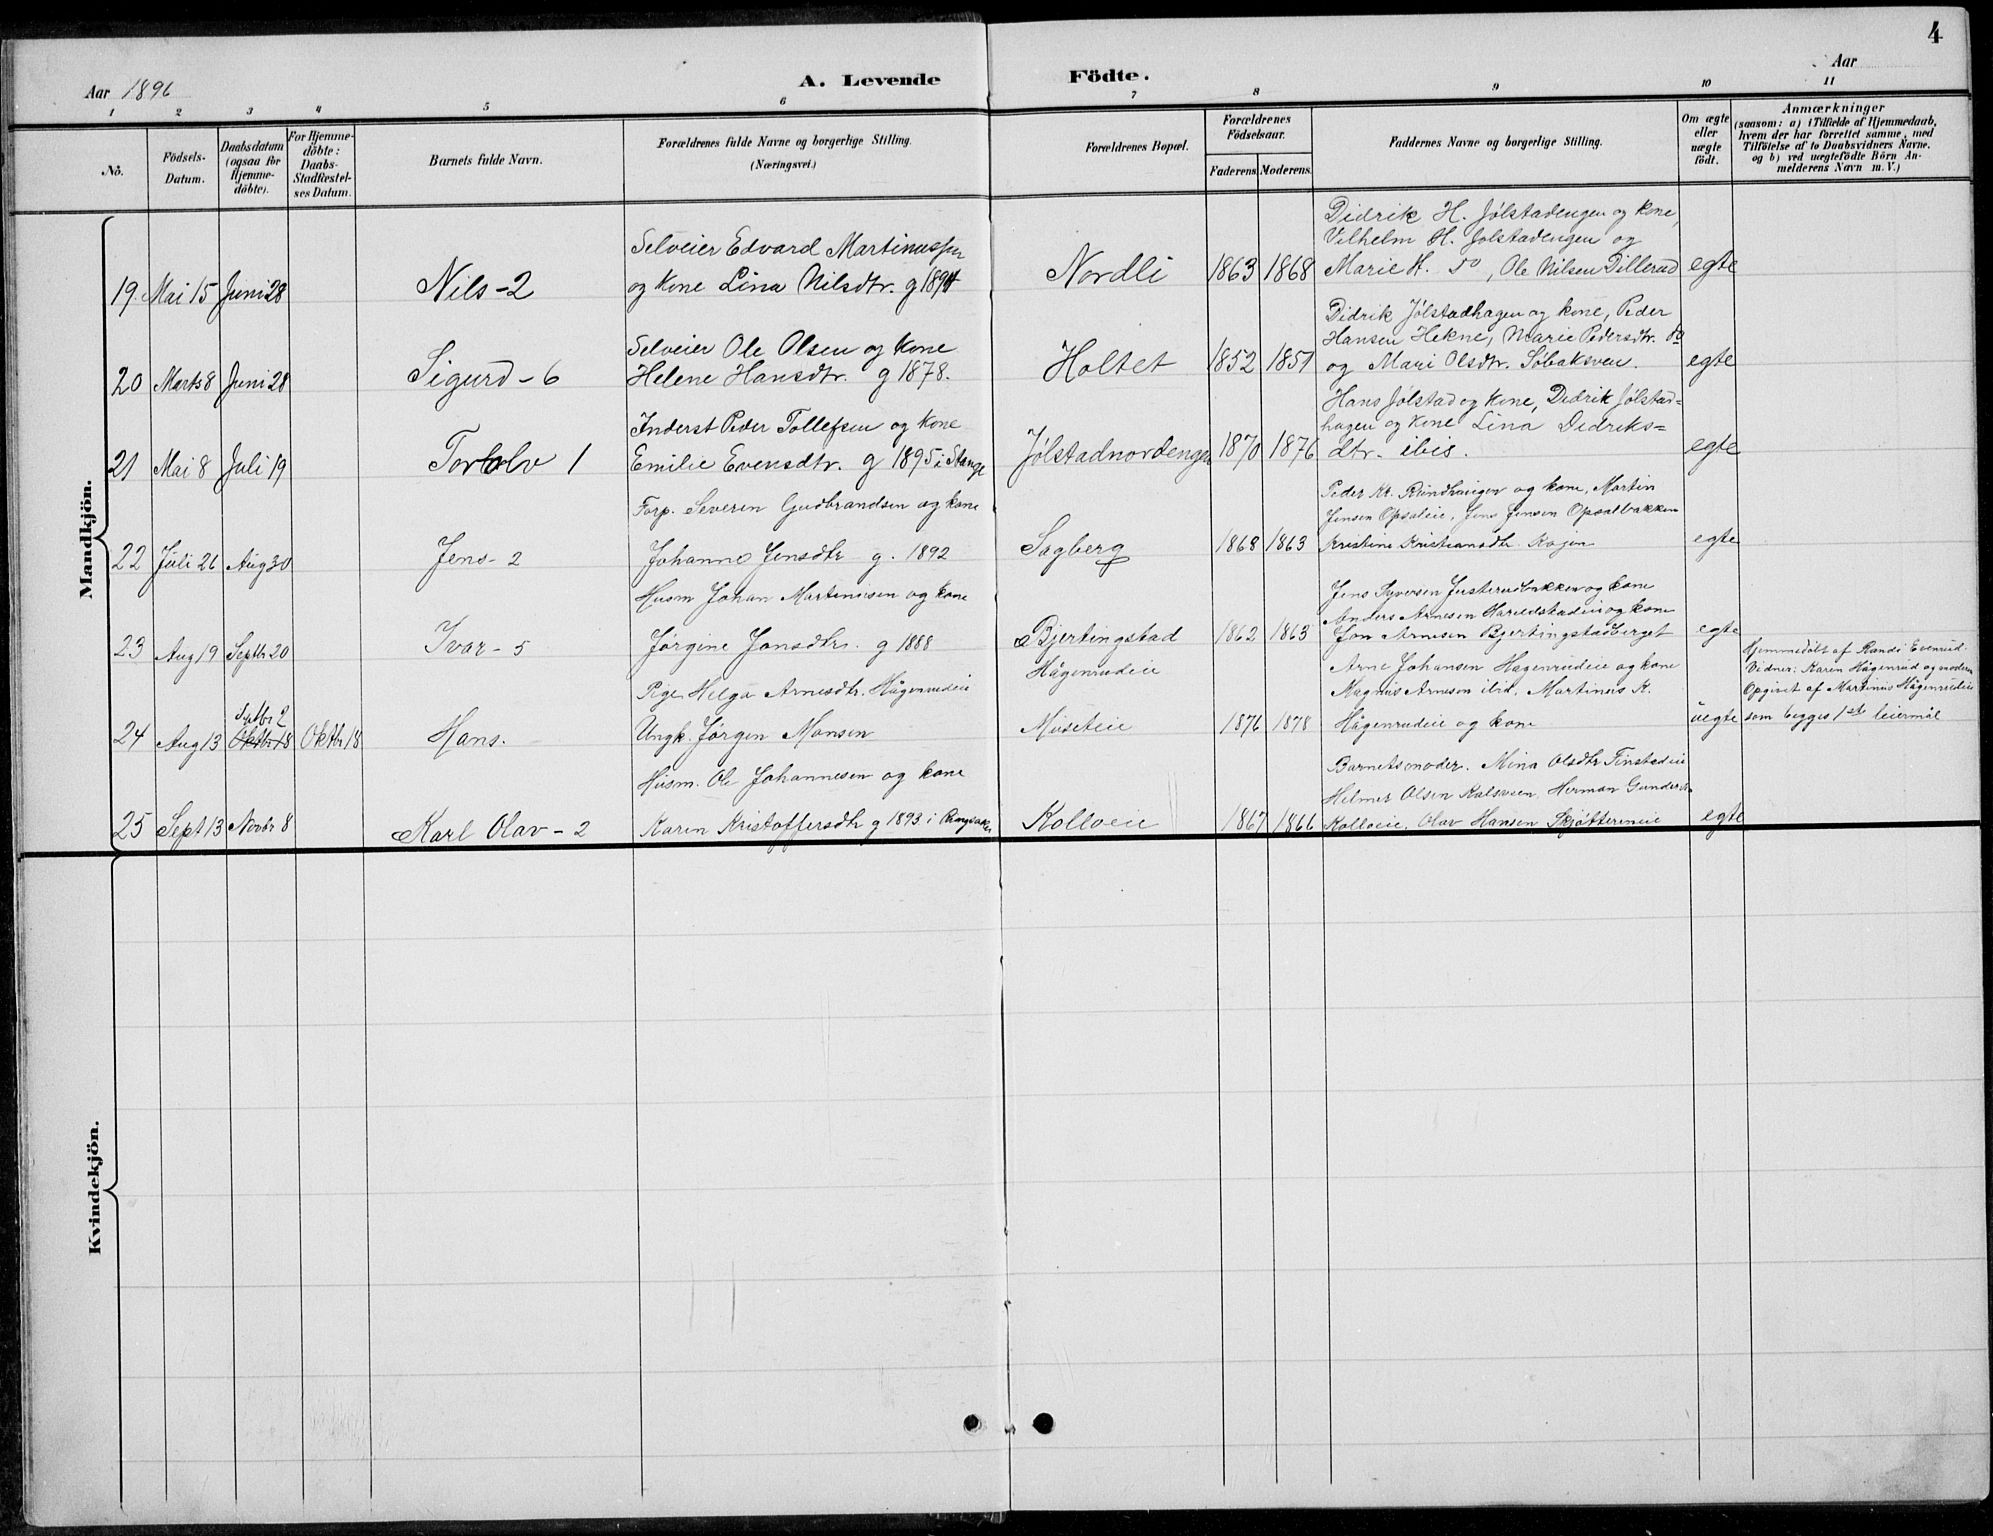 4
Aar 1896
A. Levende Födte.
Aar
1 2 3 4 5 6 7 8 9 10 11
Nö.
Födsels-Datum.
Daabsdatum (ogsaa for Hjemme-döbte).
For Hjemme-döbte: Daabs-Stadfæstel-ses Datum.
Barnets fulde Navn.
Forældrenes fulde Navne og borgerlige Stilling.
(Næringsvei.)
Forældrenes Bopæl.
Forældrenes Födselsaar.
Faderens Moderens.
Faddernes Navne og borgerlige Stilling.
Om ægte eller uægte födt.
Anmærkninger
(saasom: a) i Tilfælde af Hjemmedaab,
hvem der har forrettet samme, med
Tilföielse af to Daabsvidners Navne.
og b) ved uægtefödte Börn An-
melderens Navn m. V.)
Mandkjön.
19. Mai 15 Juni 28
Nils - 2
Selveier Edvard Martinussen
og Kone Lina Nilsdtr. g 1894
Nordli
1863 1868
Didrik H. Jølstadengen og Kone,
Vilhelm H. Jølstadengen og
Marie H. do, Ole Nilsen Dillerud
egte
20 Marts 8 Juni 28
Sigurd - 6
Selveier Ole Olsen og Kone
Helene Hansdtr. g 1878.
Holtet
1852 1851
Didrik Jølstadhagen og kone, Peder
Hansen Hekne, Marie Pedersdtr. do
og Mari Olsdtr. Søbaksveen.
egte
21 Mai 8 Juli 19
Torolv 1
Inderst Peder Tollefsen og Kone
Emilie Evensdtr. g 1895 i Stange
Jølstadnordengen
1870 1876
Hans Jølstad og Kone, Didrik Jølstad=
hagen og Kone Lina Didriks=
dtr. ibid.
egte
22 Juli 26 Aug 30
Jens - 2
Forp. Severin Gudbrandsen og kone
Johanne Jensdtr g. 1892
Sagberg
1868 1863
Peder Kr. Rundhaugen og kone, Martin
Jensen Opsaleie, Jens Jensen Opsalbakken
Kristine Kristiansdtr.
egte
23 Aug 19 Septbr 20
Ivar - 5
Husm Johan Martinisen og kone
Jørgine Jonsdtr. g 1888
Bjertingstad
1862 1863
Jens Syversen Justerudbakken og kone
Anders Arnesen Hareldstadeie og kone
Jon Arnesen Bjertingstadberget
egte
24 Aug 13 Septbr 2 Oktbr 18 Oktbr 18
Hans.
Pige Helga Arnesdtr. Hågenrudeie
Ungk. Jørgen Monsen
Hågenrudeie
Museteie
1876 1878
Arne Johansen Hagenrudeie og kone
Magnus Arnesen ibid, Martinus K.
Hågenrudeie og kone
uegte
Hjemmedøbt af Randi Evenrud.
Vidner: Karen Hågenrud og moderen
Opgivet af Martinus Hågenrudeie
som begges 1ste leiermål
25 Sept 13 Novbr 8
Karl Olav - 2
Husm. Ole Johannesen og kone
Karen Kristoffersdtr g 1893 i Ringsaker
Kolloeie
1867 1866
Barnets moder. Mina Olsdtr Finstadeie
Helmer Olsen Kalsveen, Herman Gunders
Kolloeie, Olav Hansen Skjøttereneie
egte
Kvindekjön.